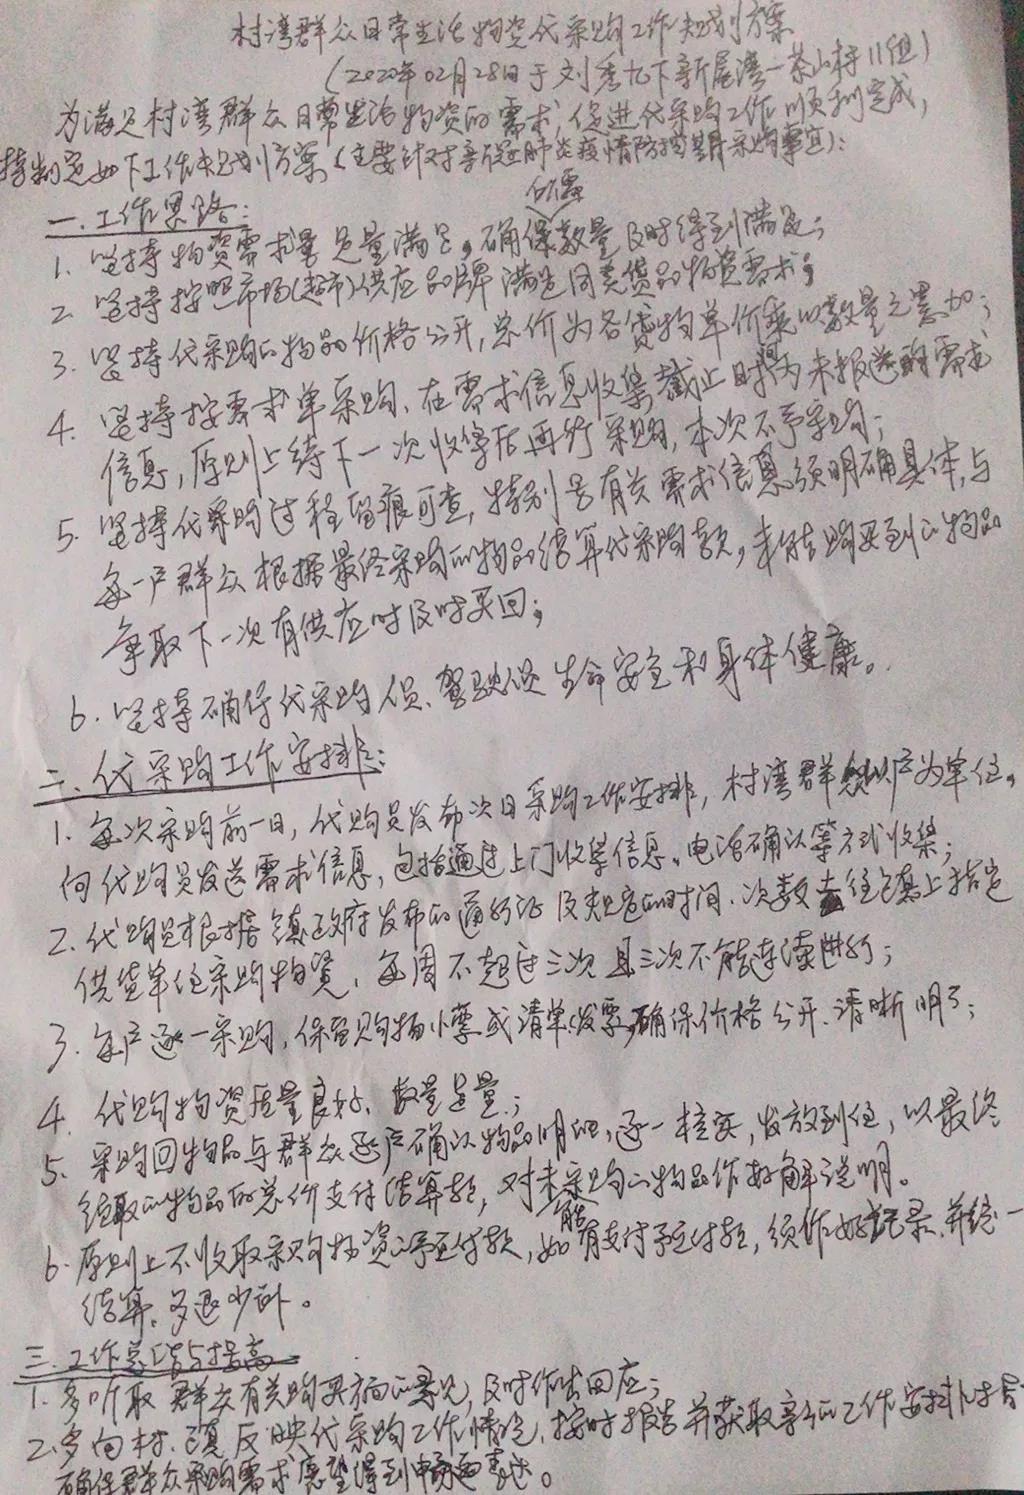 村湾群众日常生活物资代采购工作规划方案
(2020年02月28日于刘秀九下新屋湾一茶山村11组)
为满足村湾群众日常生活物资的需求,促进代采购工作顺利完成,
特制定如下工作规划方案(主要针对新冠肺炎疫情防控期采购事宜):
一.工作思路:
1. 坚持物资需求量足量满足,确保所需数量及时得到满足;
2. 坚持按照市场(超市)供应品牌满足同类货品物资需求;
3. 坚持代采购的物品价格公开,总价为各货物单价乘以数量之累加;
4. 坚持按需求单采购、在需求信息收集截止时间为未报送的需求
信息,原则上待下一次收集后再行采购,本次不予采购;
5. 坚持代采购过程留痕可查,特别是有关需求信息须明确具体,与
每一户群众根据最终采购的物品结算代采购款,未能购买到的物品
争取下一次有供应时及时买回;
6. 坚持确保代采购员、驾驶员生命安全和身体健康。
二、代采购工作安排:
1. 每次采购前一日,代购员发布次日采购工作安排,村湾群众以户为单位,
向代购员发送需求信息,包括通过上门收集信息、电话确认等方式收集;
2. 代购员根据镇政府发布的通行证及规定的时间、次数去往镇上指定
供货单位采购物资,每周不超过三次且三次不能连续进行;
3. 每户逐一采购,保留购物小票或清单、发票,确保价格公开、清晰明了;
4. 代购物资质量良好、数量足量;
5. 采购回物品与群众逐户确认物品明细,逐一核实,发放到位,以最终
领取的物品的总价支付结算款,对未能采购的物品作好解释说明。
6. 原则上不收取采购物资之预付款,如有支付预付款,须作好记录、并统一
结算、多退少补。
三.工作总结与提高
1. 多听取群众有关购买方面的意见,及时作出回应;
2. 多向村、镇反映代采购工作情况,按时报告并获取新的工作安排、指导
确保群众采购需求愿望得到畅通表达。